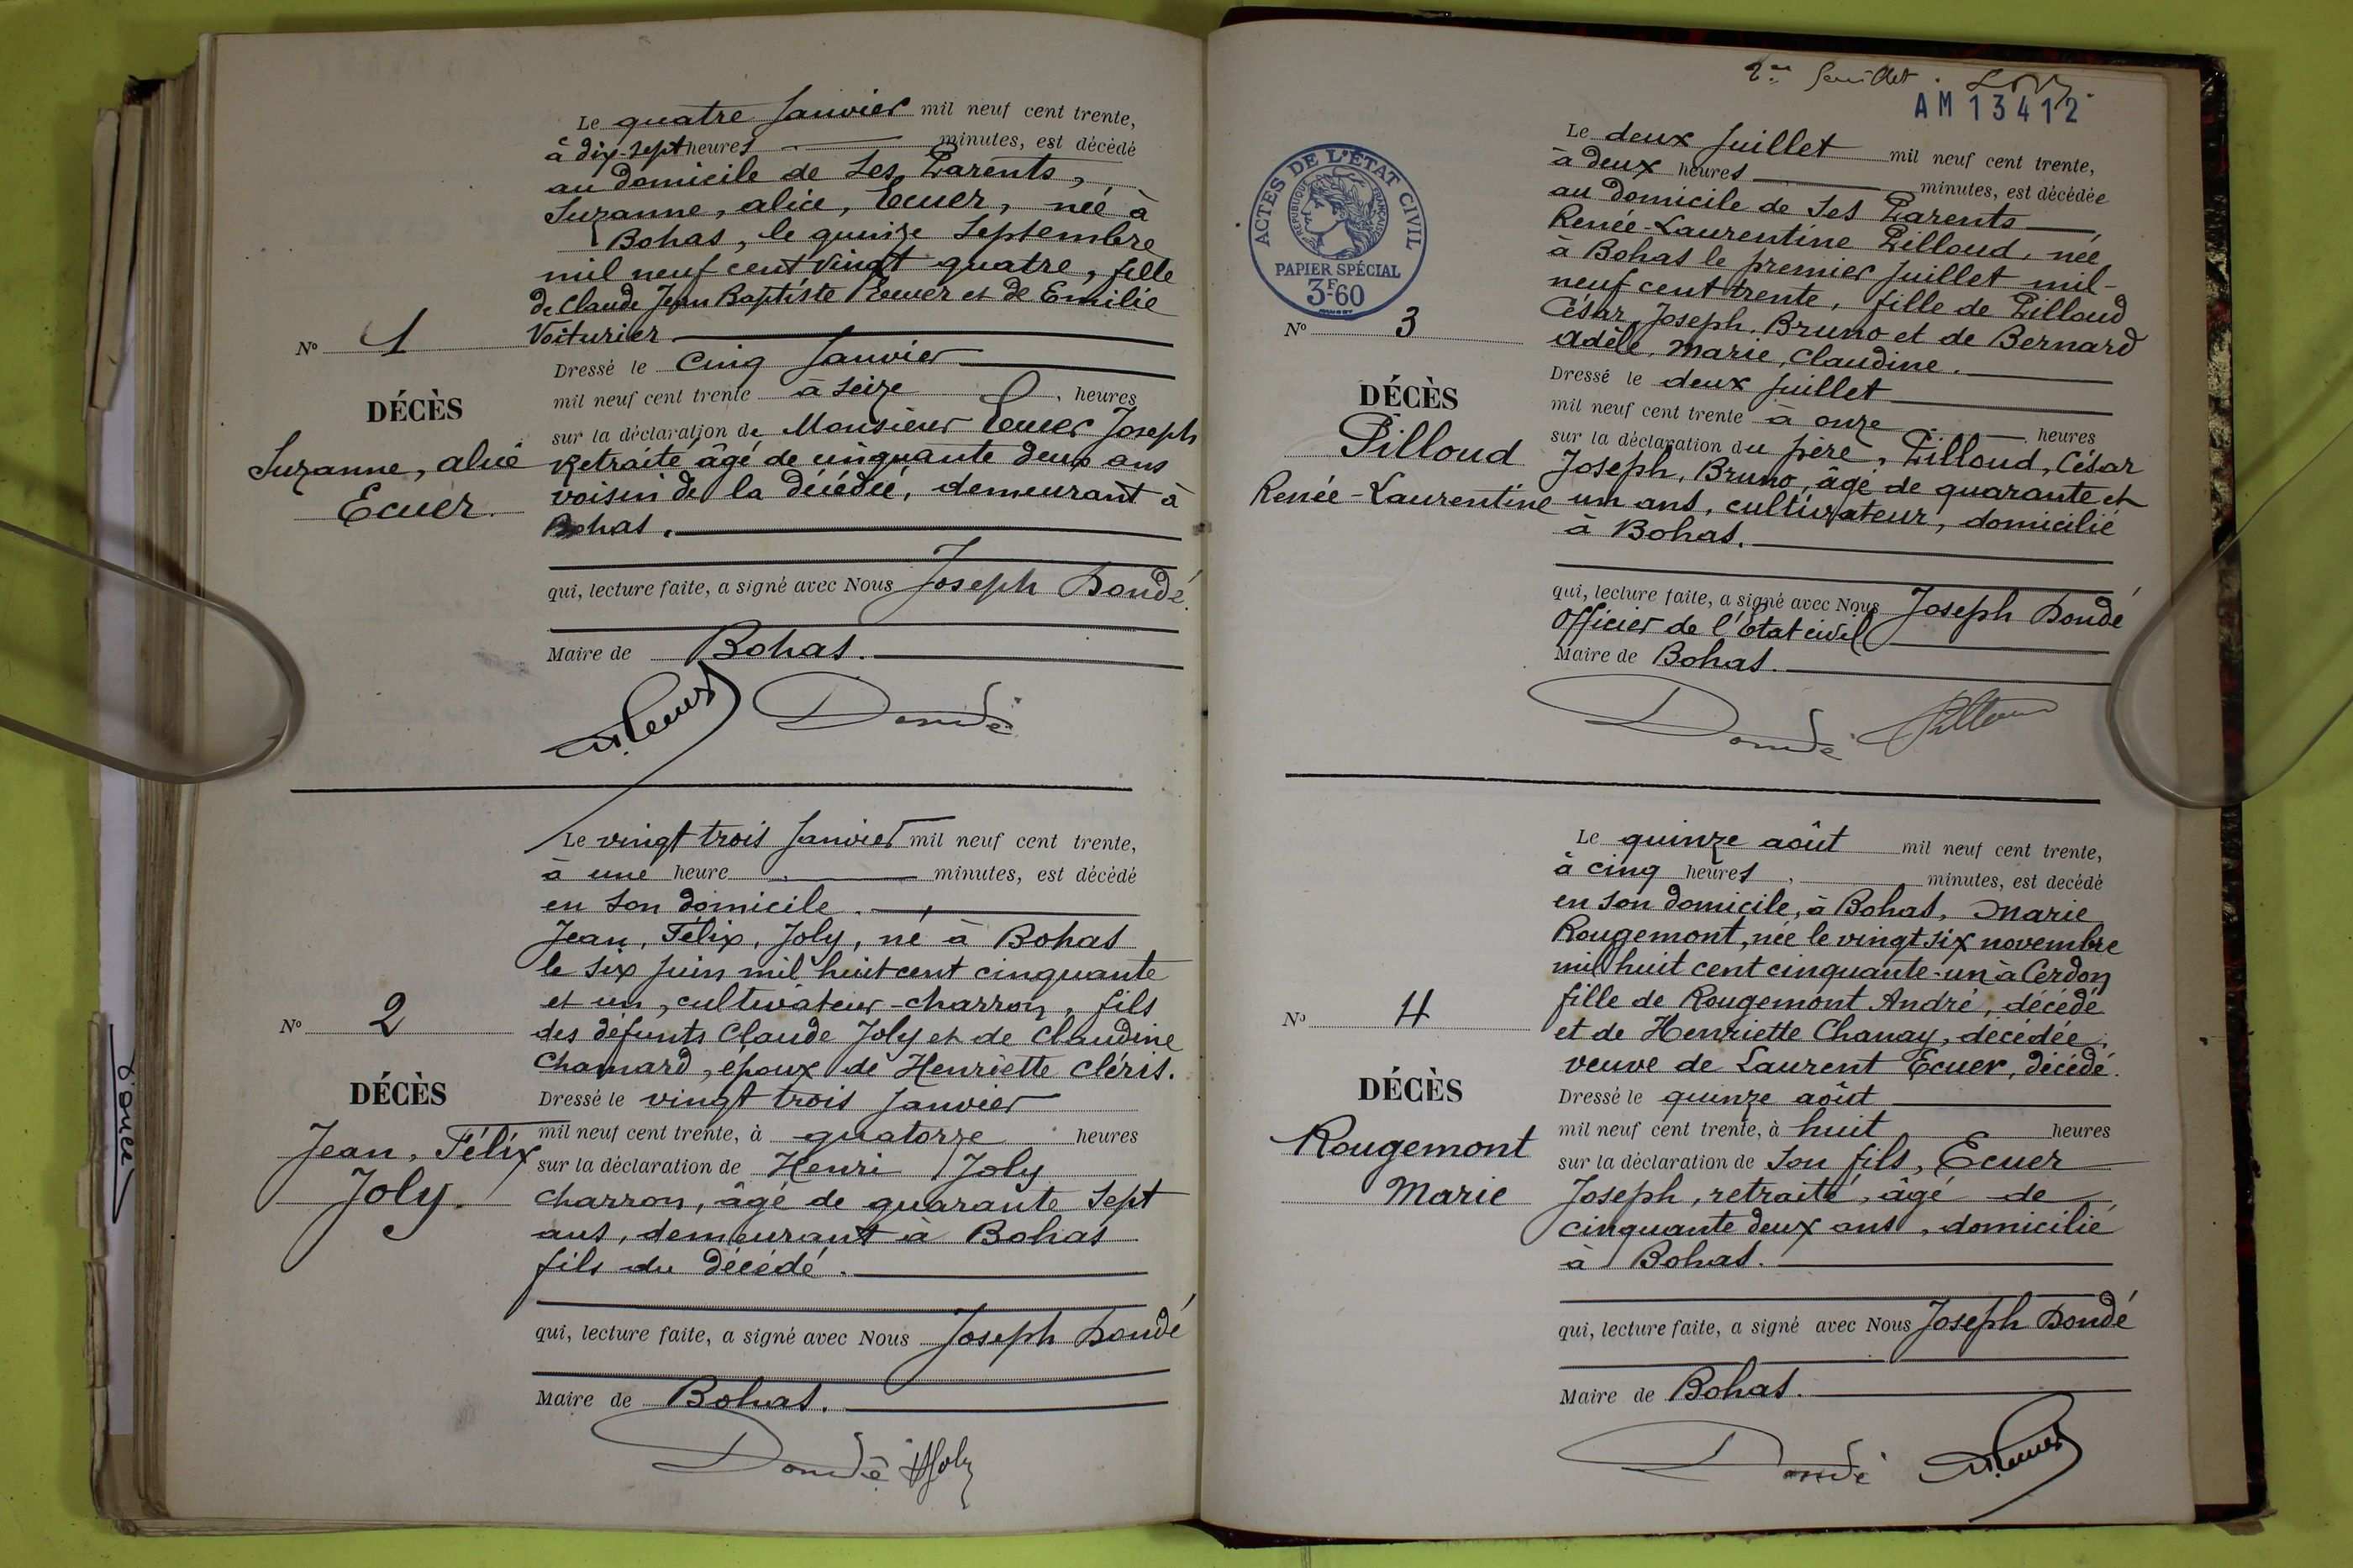 Le quatre Janvier mil neuf cent trente,
à dix-sept heures minutes, est décédé
au domicile de ses Parents,
Suzanne, alice, Ecuer, née à
Bohas, le quinze Septembre
mil neuf cent vingt quatre, fille
de Claude Jean Baptiste Ecuer et de Emilie
Voiturier
Nº 1
DÉCÈS
Suzanne, alice
Ecuer.
Dressé le Cinq Janvier
mil neuf cent trente à seize heures
sur la déclaration de Monsieur Ecuer Joseph
Retraité âgé de cinquante deux ans
voisin de la décédée, demeurant à
Bohas.
qui, lecture faite, a signé avec Nous Joseph Dondé
Maire de Bohas.
Dondé
Le vingt trois Janvier mil neuf cent trente,
à une heure minutes, est décédé
en son domicile.
Jean, Félix, Joly, né à Bohas
le six juin mil huit cent cinquante
et un, cultivateur-charron, fils
des défunts Claude Joly et de Claudine
Chamard, époux de Henriette Cléris.
Nº 2
DÉCÈS
Jean, Félix
Joly.
Dressé le vingt trois Janvier
mil neuf cent trente, à quatorze heures
sur la déclaration de Henri Joly
charron, âgé de quarante sept
ans, demeurant à Bohas
fils du décédé.
qui, lecture faite, a signé avec Nous Joseph Dondé
Maire de Bohas.
Dondé HJoly
2me feuillet.
AM 13412
ACTES DE L'ÉTAT CIVIL
RÉPUBLIQUE FRANÇAISE
PAPIER SPÉCIAL
3F60
Le deux Juillet mil neuf cent trente,
à deux heures minutes, est décédée
au domicile de ses Parents
Renée-Laurentine Pilloud, née
à Bohas le premier juillet mil-
neuf cent trente, fille de Pilloud
César, Joseph, Bruno et de Bernard
Adèle, Marie, Claudine.
Nº 3
DÉCÈS
Pilloud
Renée-Laurentine
Dressé le deux juillet
mil neuf cent trente à onze heures
sur la déclaration du père, Pilloud, César
Joseph, Bruno, âgé de quarante et
un ans, cultivateur, domicilié
à Bohas.
qui, lecture faite, a signé avec Nous Joseph Dondé
Officier de l'Etat civil
Maire de Bohas.
Dondé
Le quinze août mil neuf cent trente,
à cinq heures, minutes, est decédé
en son domicile, à Bohas, Marie
Rougemont, née le vingt six novembre
mil huit cent cinquante-un à Cerdon
fille de Rougemont André, décédé
et de Henriette Chanay, décédée,
veuve de Laurent Ecuer, décédé.
Nº 4
DÉCÈS
Rougemont
Marie
Dressé le quinze août
mil neuf cent trente, à huit heures
sur la déclaration de son fils, Ecuer
Joseph, retraité, âgé de
cinquante deux ans, domicilié
à Bohas.
qui, lecture faite, a signé avec Nous Joseph Dondé
Maire de Bohas.
Dondé